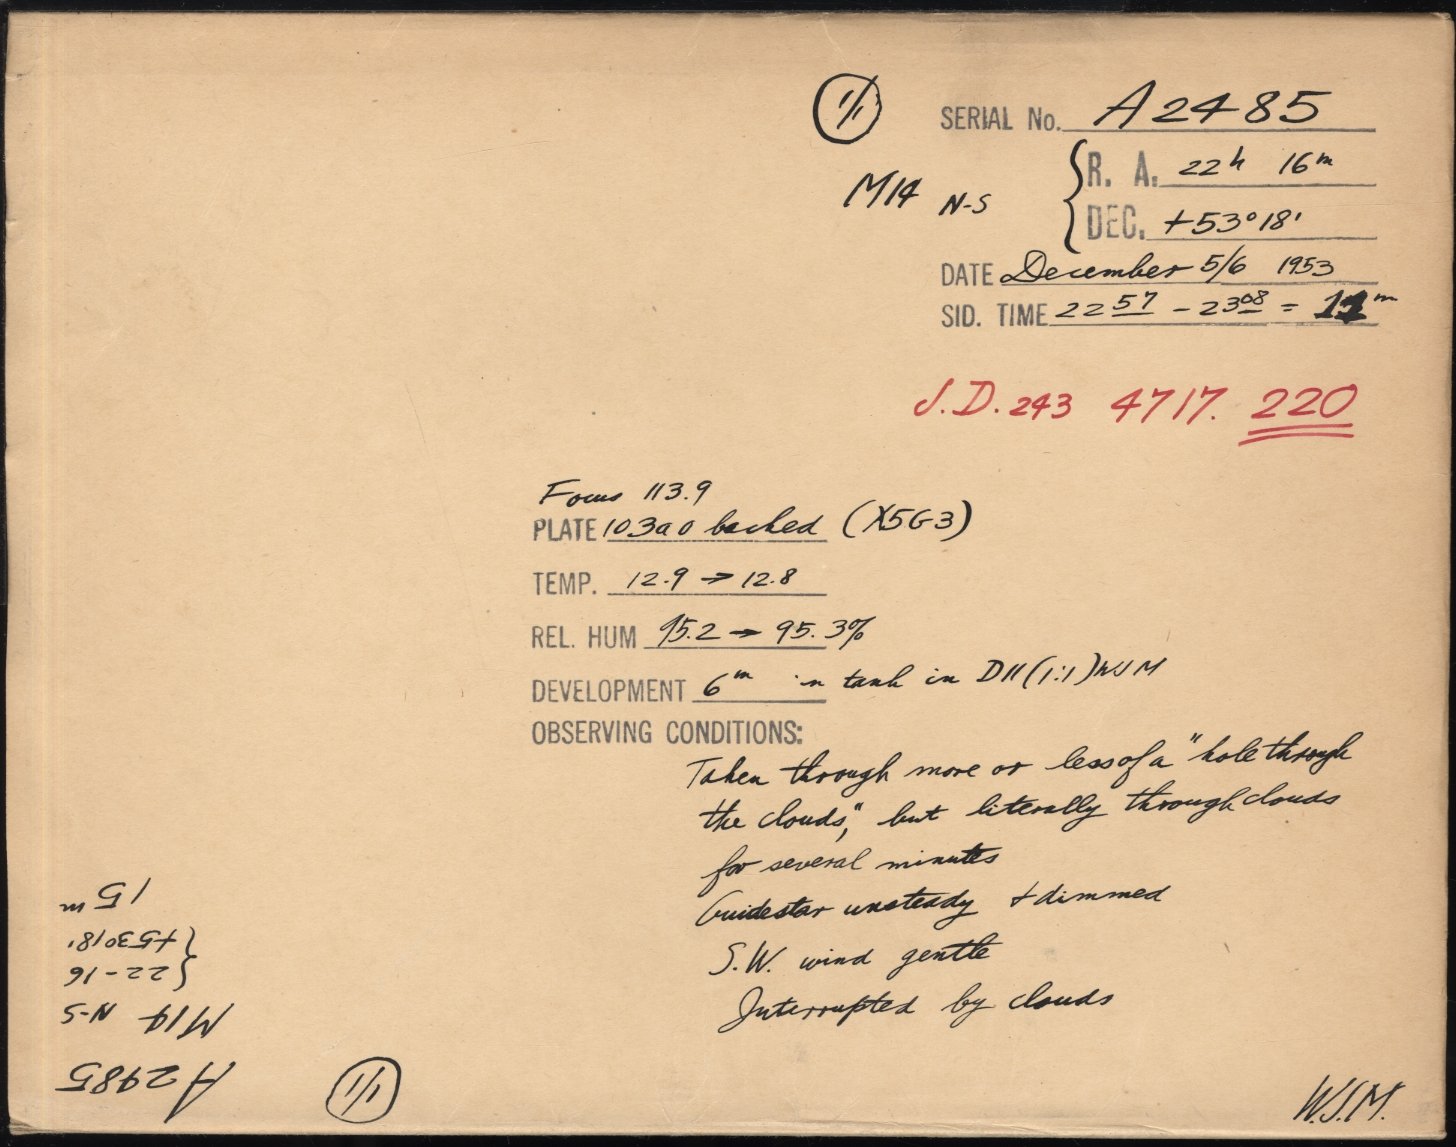 1/1
SERIAL No. A2485
M14 N-S
R. A. 22h 16m
DEC. +53°18'
DATE December 5/6 1953
SID. TIME 22 57 - 23 08 = 11m
J.D. 243 4717. 220
Focus 113.9
PLATE 103a0 backed (X5G3)
TEMP. 12.9 → 12.8
REL. HUM 95.2 → 95.3%
DEVELOPMENT 6m in tank in D11 (1:1) WJM
OBSERVING CONDITIONS:
Taken through more or less of a "hole through
the clouds", but literally through clouds
for several minutes
Guidestar unsteady + dimmed
S.W. wind gentle
Interrupted by clouds
W.J.M.
1/1
A2485
M14 N-S
22-16
+53°18'
15m